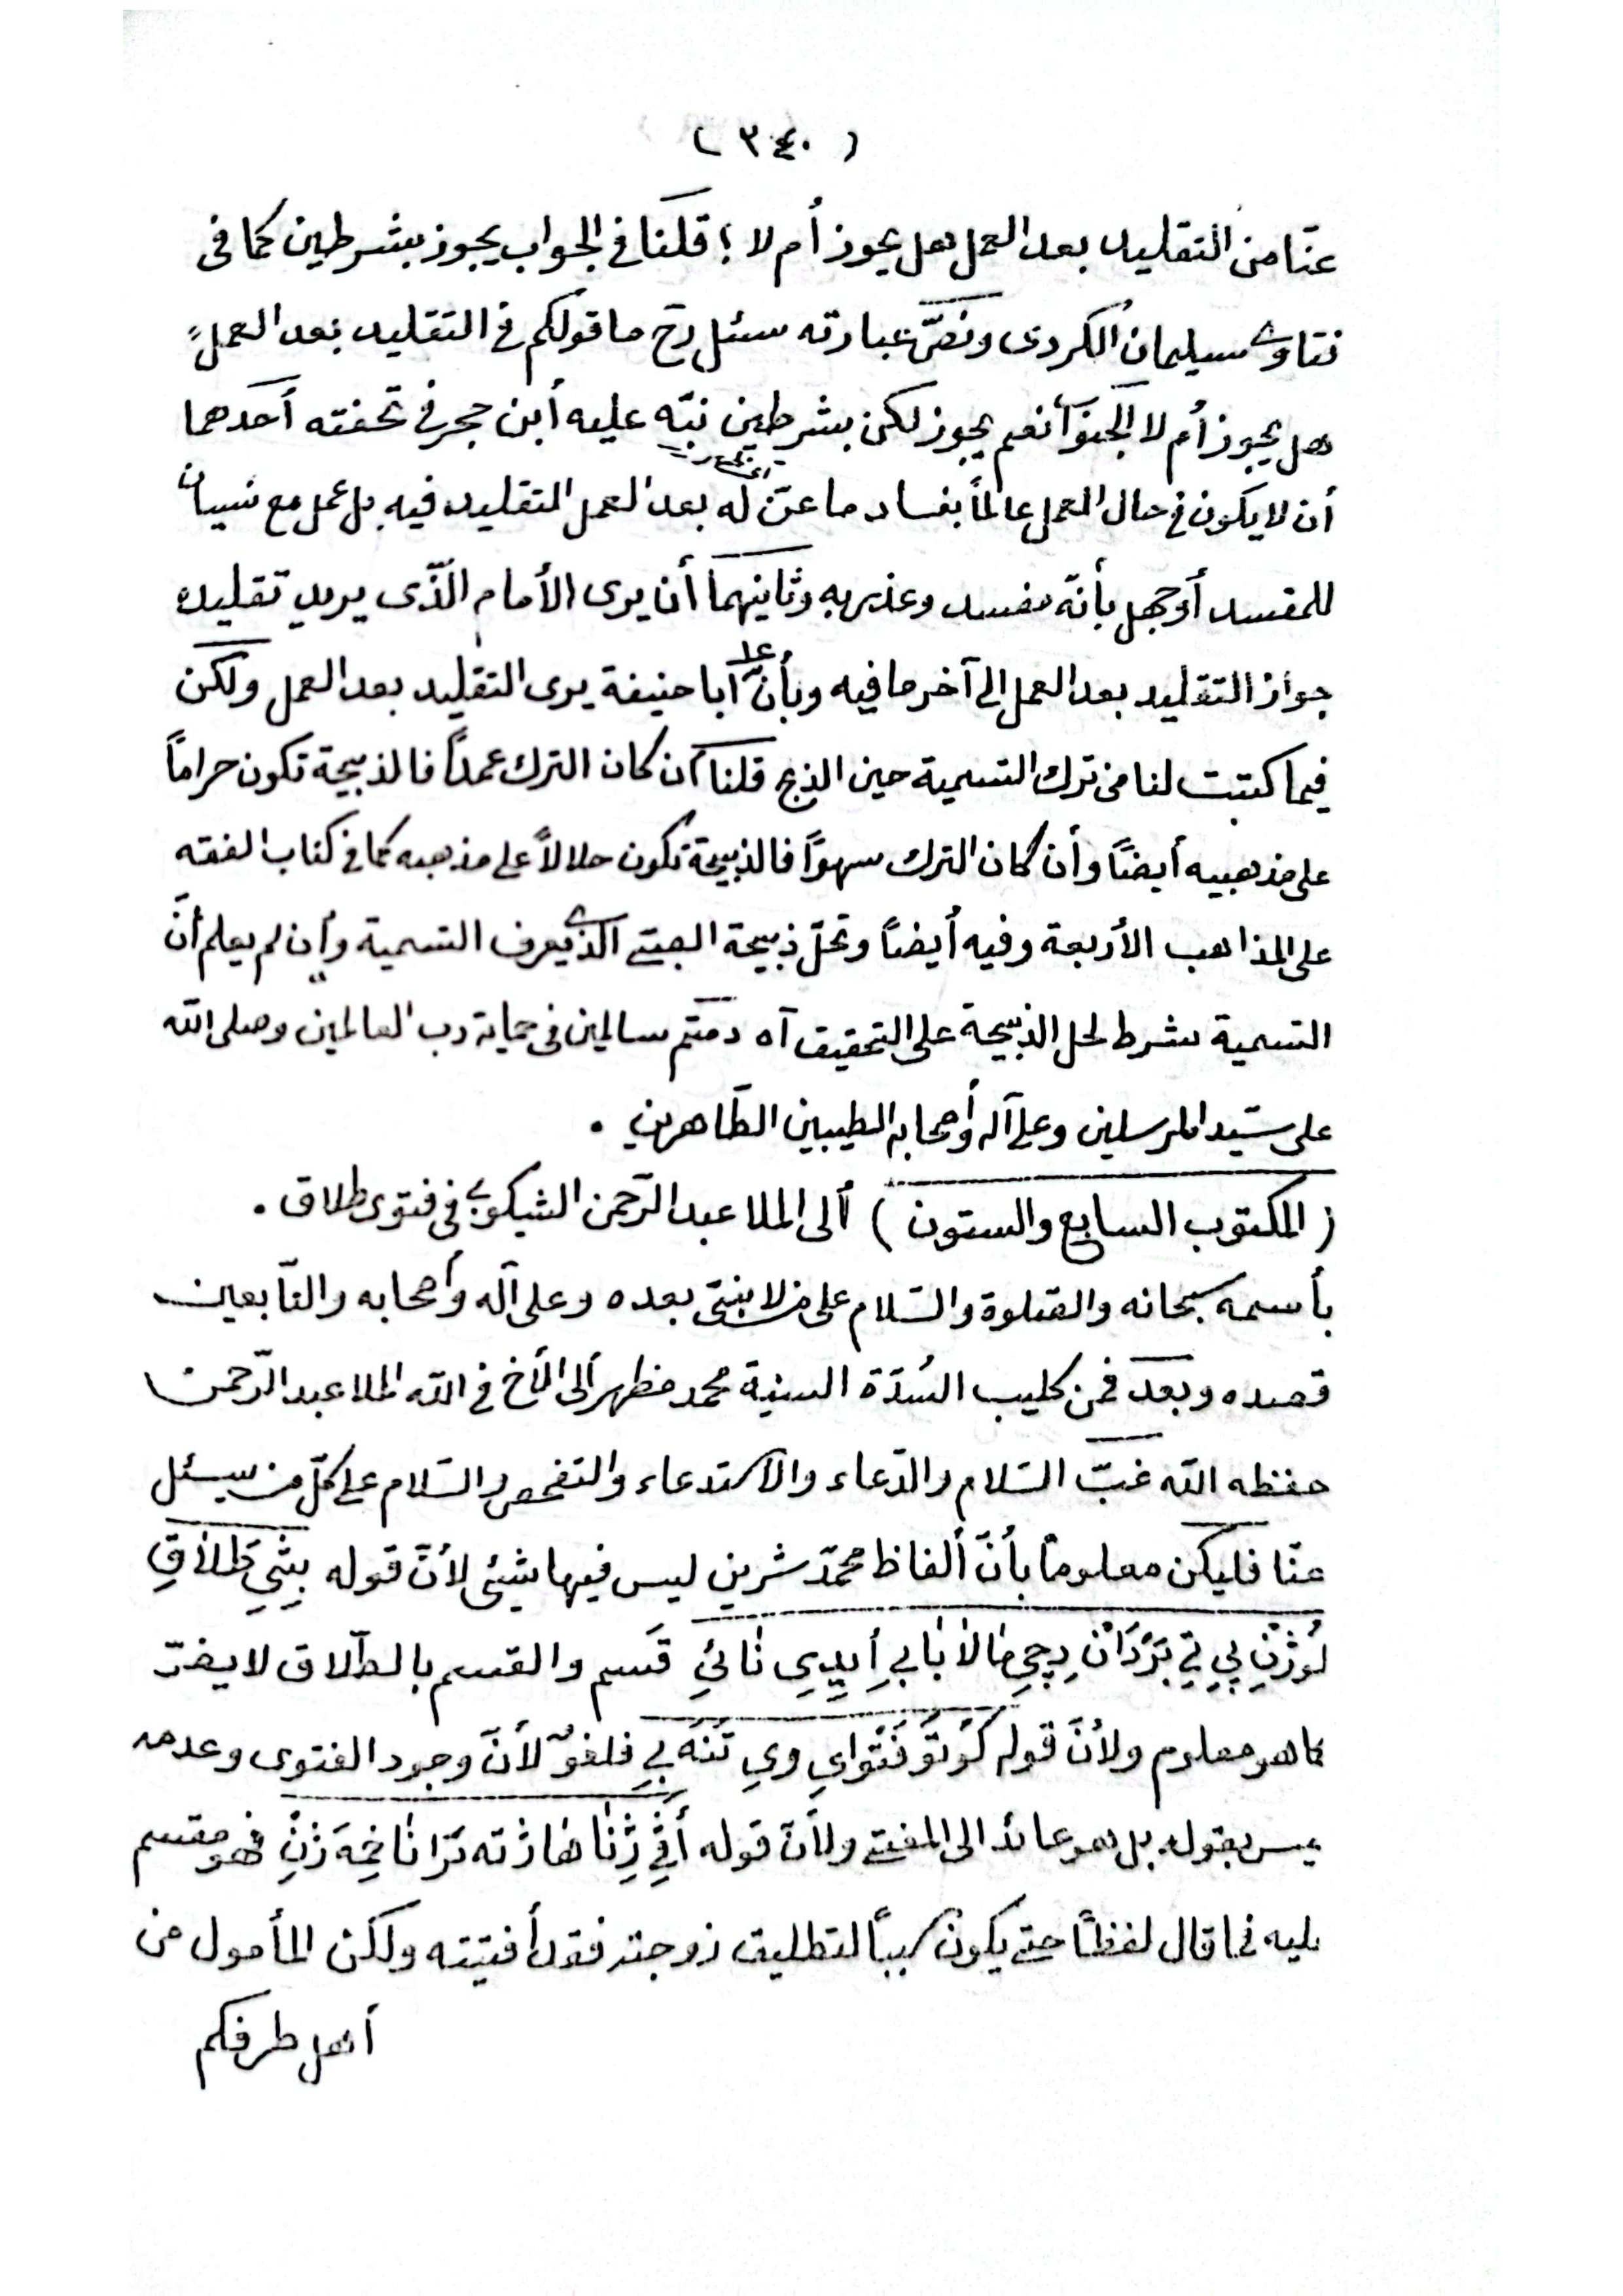 ( ٣٤٠ )
عنّا من التقليد بعد العمل هل يجوز أم لا ؟ قلنا فى الجواب يجوز بشرطين كما فى
فتاوى سيليمان الكردى ونصّ عبارته سئل رح ما قولكم فى التقليد بعد العمل
هل يجوز أم لا الجواب نعم يجوز لكن بشرطين نبّه عليه أبن حجر فى تحفته أحدهما
أن لا يكون فى حال العمل عالماً بفساد ما عنّ له بعد العمل التقليد فيه بل عمل مع نسيان
للمفسد أو جهل بأنّه مفسد وعذر به وثانيهما أن يرى الأمام الّذى يريد تقليده
جواز التقليد بعد العمل إلى آخر ما فيه وبأنّ أبا حنيفة يرى التقليد بعد العمل ولكن
فيما كتبت لنا من ترك التسمية حين الذبح قلنا أن كان الترك عمداً فالذبيحة تكون حراماً
على مذهبيه أيضاً وأن كان الترك سهوًا فالذبيحة تكون حلالاً على مذهبه كما فى كتاب الفقه
على المذاهب الأربعة وفيه أيضاً وتحلّ ذبيحة الصبى الذى يعرف التسمية وإن لم يعلم أنّ
التسمية شرط لحل الذبيحة على التحقيق آه دمتم سالمين فى حماية رب العالمين وصلى الله
على سيّد المرسلين وعلى آله وأصحابه الطيبين الطّاهرين .
( المكتوب السابع والستون ) ألى الملا عبد الرّحمن الشيكوبى فى فتوى طلاق .
بأسمه سبحانه والصّلوة والسّلام على من لا نبىّ بعده وعلى آله وأصحابه والتّابعين
قصده وبعد فمن كليب السُدّة السنية محمد مظهر ألى الأخ فى الله الملا عبد الرّحمن
حفظه الله غبّ السّلام والدّعاء والأستدعاء والتفحص والسّلام على كلّ من سيئل
عنّا فليكن معلومًا بأنّ ألفاظ محمّد شرين ليس فيها شيئى لأنّ قوله بِثِي طَلاٰقِ
قَسم والقسم بالطّلاق لا يضرّ
كما هو معلوم ولأنّ قوله كُوتُو فَتْوَاىِ وىِ تُنَه بِى فلغوٌ لأنّ وجود الفتوى وعدمه
ليس بقوله بل هو عائد الى المفتى ولأنّ قوله فهو مقسم
عليه فما قال لفظًا حتى يكون سببًا لتطليق زوجته فقد أفتيته ولكن المأمول من
أهل طرفكم